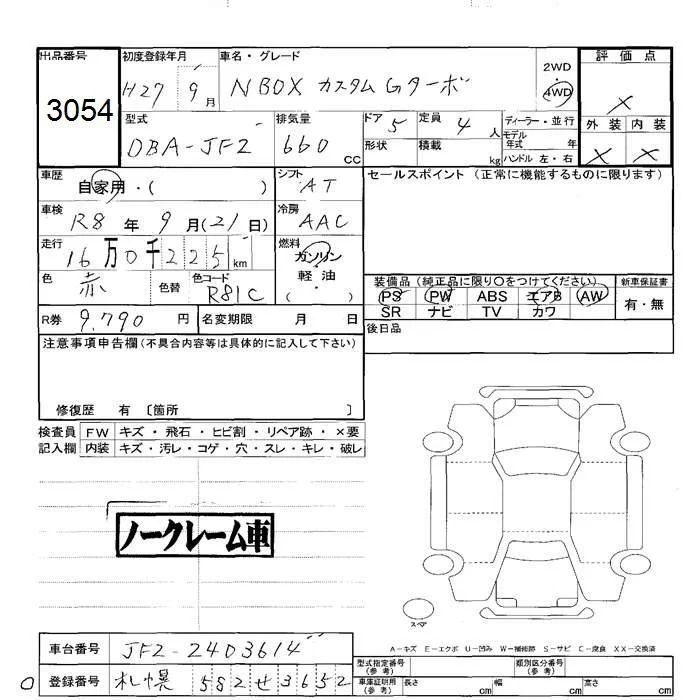 出品番号 初度登録年月 車名・グレード 2WD 評価点
3054 H27 9月 N BOX カスタム Gターボ 4WD X
型式 排気量 ドア 5 定員 4人 ディーラー・並行 外装 内装
DBA-JF2 660 CC 形状 積載 kg モデル年式 年 X X
ハンドル 左・右
車歴 自家用・( ) シフト AT セールスポイント (正常に機能するものに限ります)
車検 R8年 9月(21日) 冷房 AAC
走行 16万0千225km 燃料 ガソリン
軽油
( )
色 赤 色替 色コード R81C 装備品 (純正品に限り〇をつけてください。) 新車保証書
PS PW ABS エアB AW 有・無
SR ナビ TV カワ
R券 9,790円 名変期限 月 日 後日品
注意事項申告欄 (不具合内容等は具体的に記入して下さい)
修復歴 有 〔箇所 〕
検査員 FW キズ・飛石・ヒビ割・リペア跡・×要
記入欄 内装 キズ・汚レ・コゲ・穴・スレ・キレ・破レ
ノークレーム車
スペア
A-キズ E-エクボ U-凹み W-補修跡 S-サビ C-腐食 XX-交換済
車台番号 JF2-2403614 型式指定番号 (参考) 類別区分番号 (参考)
登録番号 札幌 582 せ 3652 車庫証明用 (参考) 長さ cm 幅 cm 高さ cm